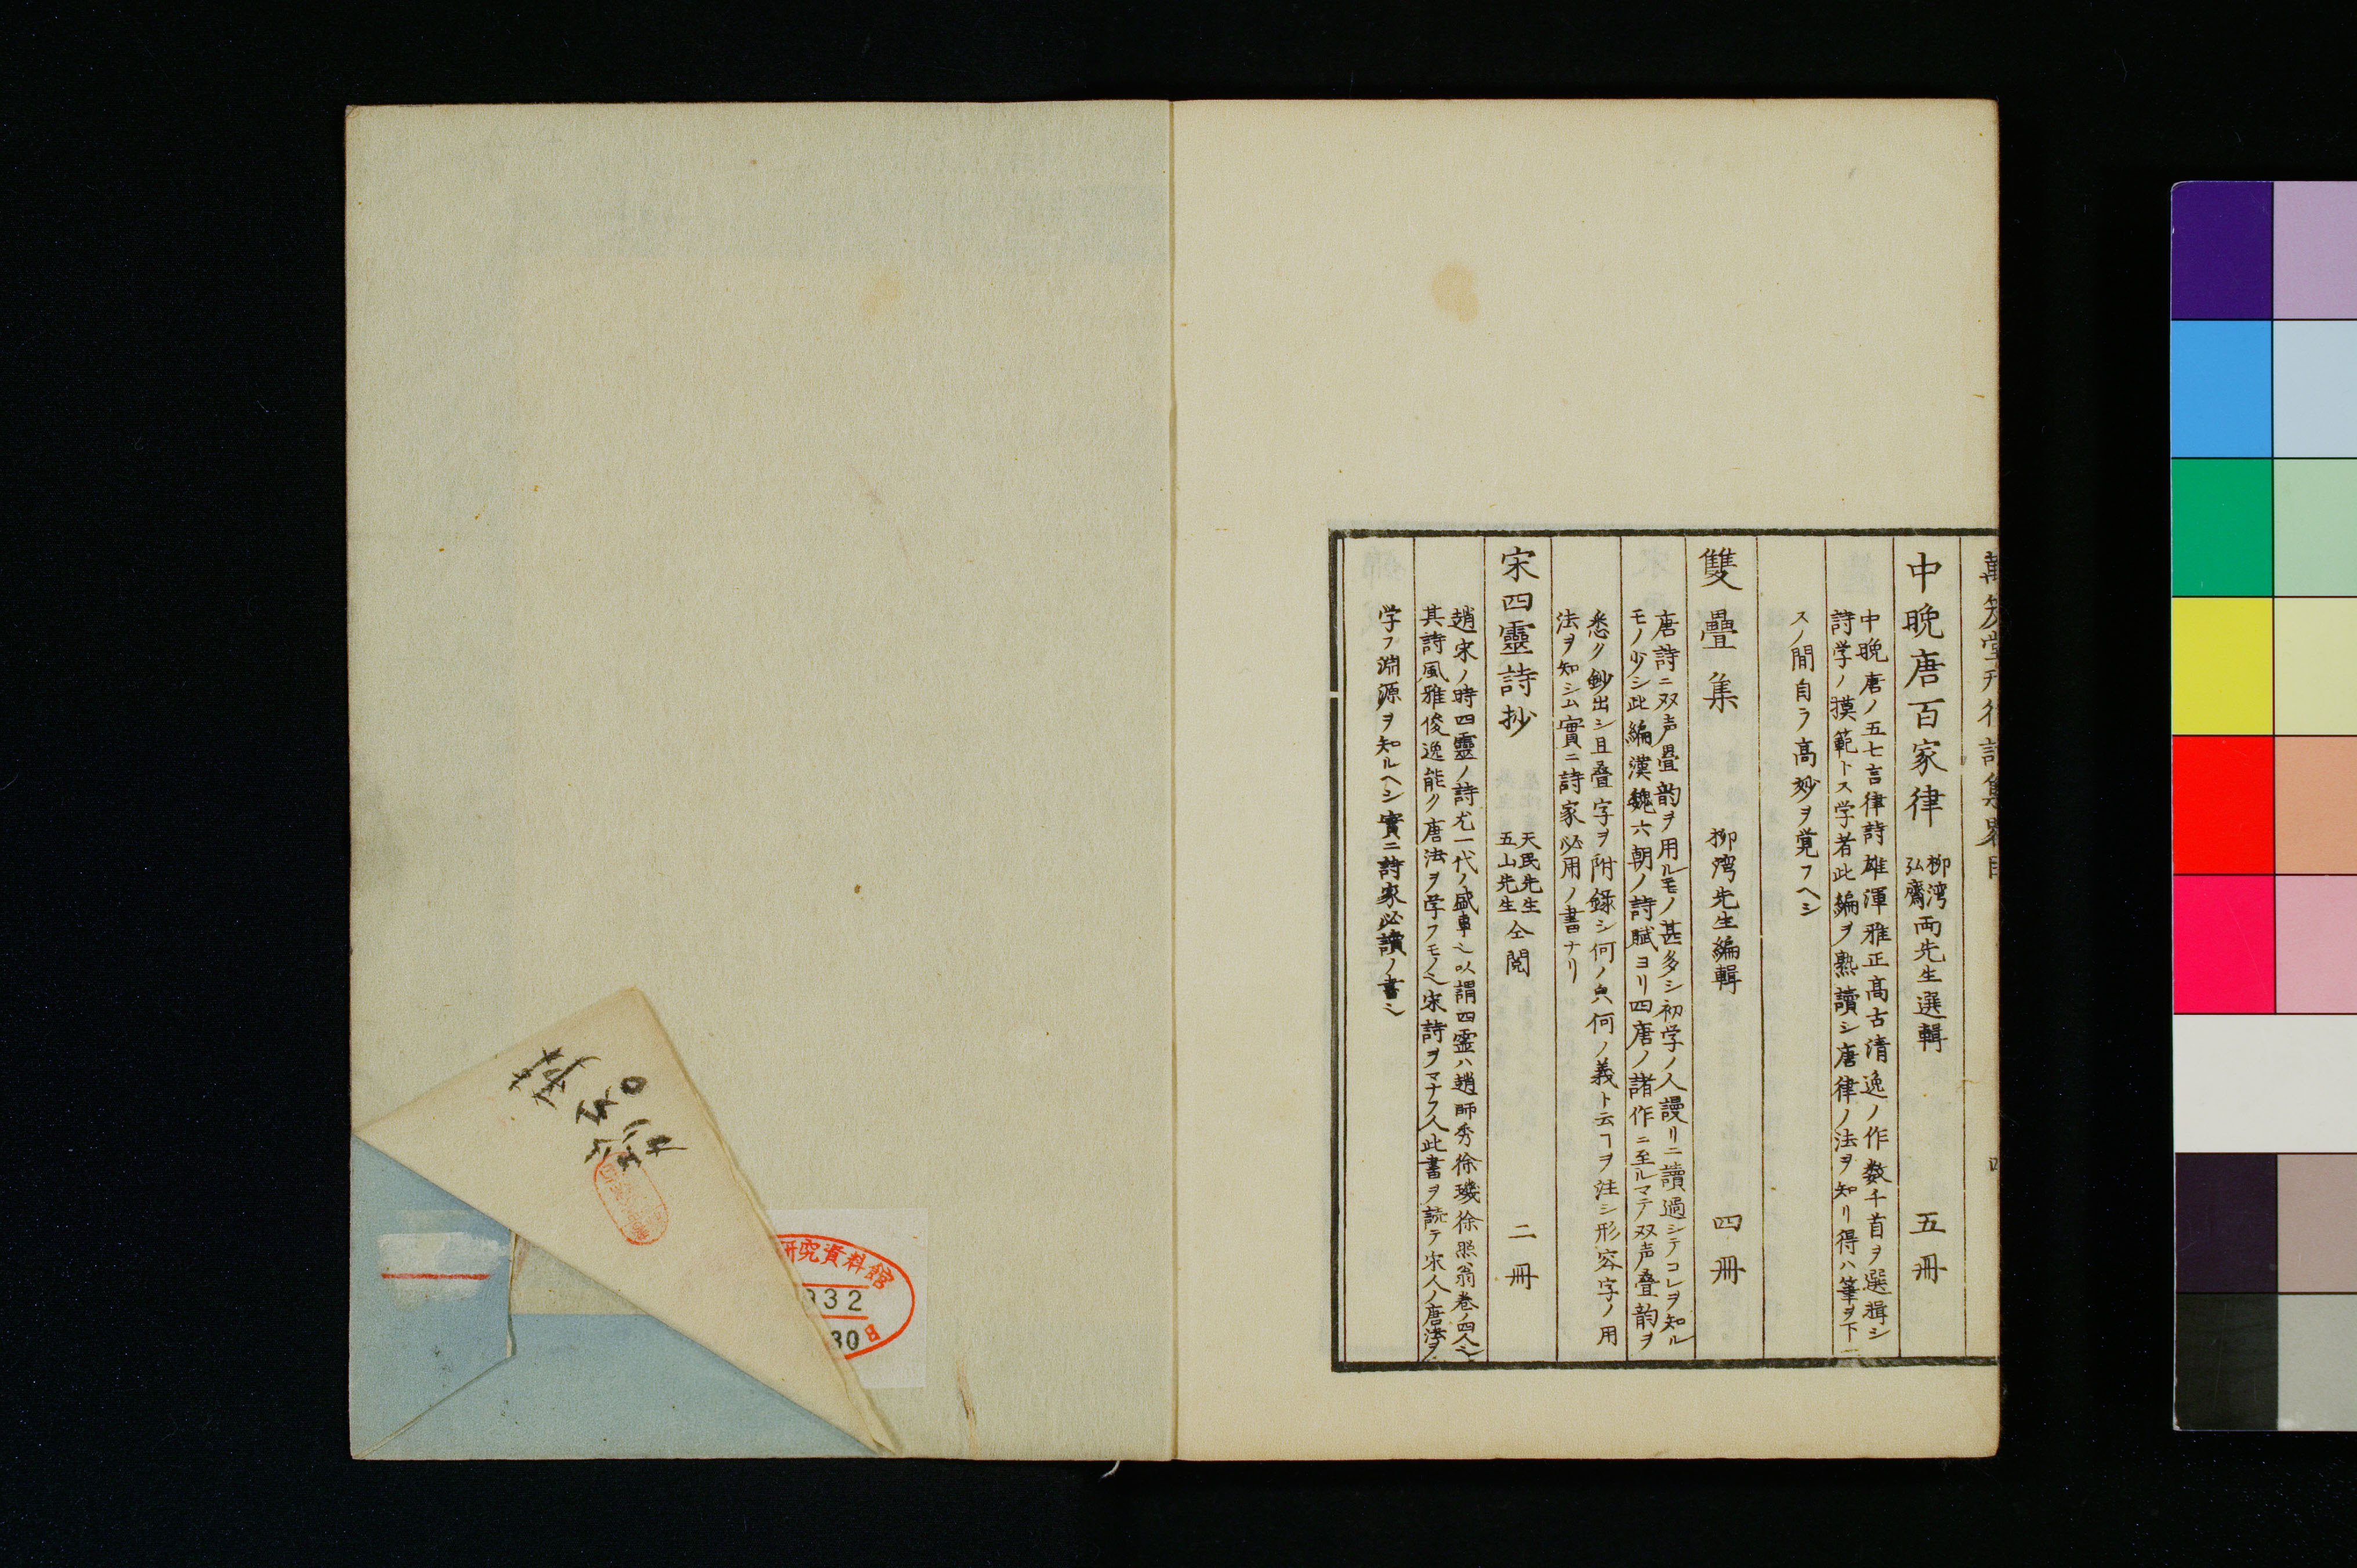 萬笈堂刊行詩集畧目 四
中晩唐百家律 柳湾弘齋両先生選輯 五冊
中晩唐ノ五七言律詩雄渾雅正高古清逸ノ作数千首ヲ選輯シ
詩学ノ摸範トス学者此編ヲ熟讀シ唐律ノ法ヲ知リ得ハ筆ヲ下
スノ間自ラ高妙ヲ覚フヘシ
雙疊集 柳湾先生編輯 四冊
唐詩ニ双声畳韵ヲ用ルモノ甚多シ初学ノ人謾リニ讀過シテコレヲ知ル
モノ少シ此編漢魏六朝ノ詩賦ヨリ四唐ノ諸作ニ至ルマテ双声疊韵ヲ
悉ク鈔出シ且疊字ヲ附録シ何ノ皃何ノ義ト云ヿヲ注シ形容字ノ用
法ヲ知シム實ニ詩家必用ノ書ナリ
宋四靈詩抄 天民先生五山先生仝閲 二冊
趙宋ノ時四靈ノ詩尤一代ノ盛事也以謂四霊ハ趙師秀徐璣徐照翁巻ノ四人也
其詩風雅俊逸能ク唐法ヲ学フモノ也宋詩ヲマナフ人此書ヲ読テ宋人ノ唐法ヲ
学フ淵源ヲ知ルヘシ實ニ詩家必讀ノ書也
研究資料館
932
30日